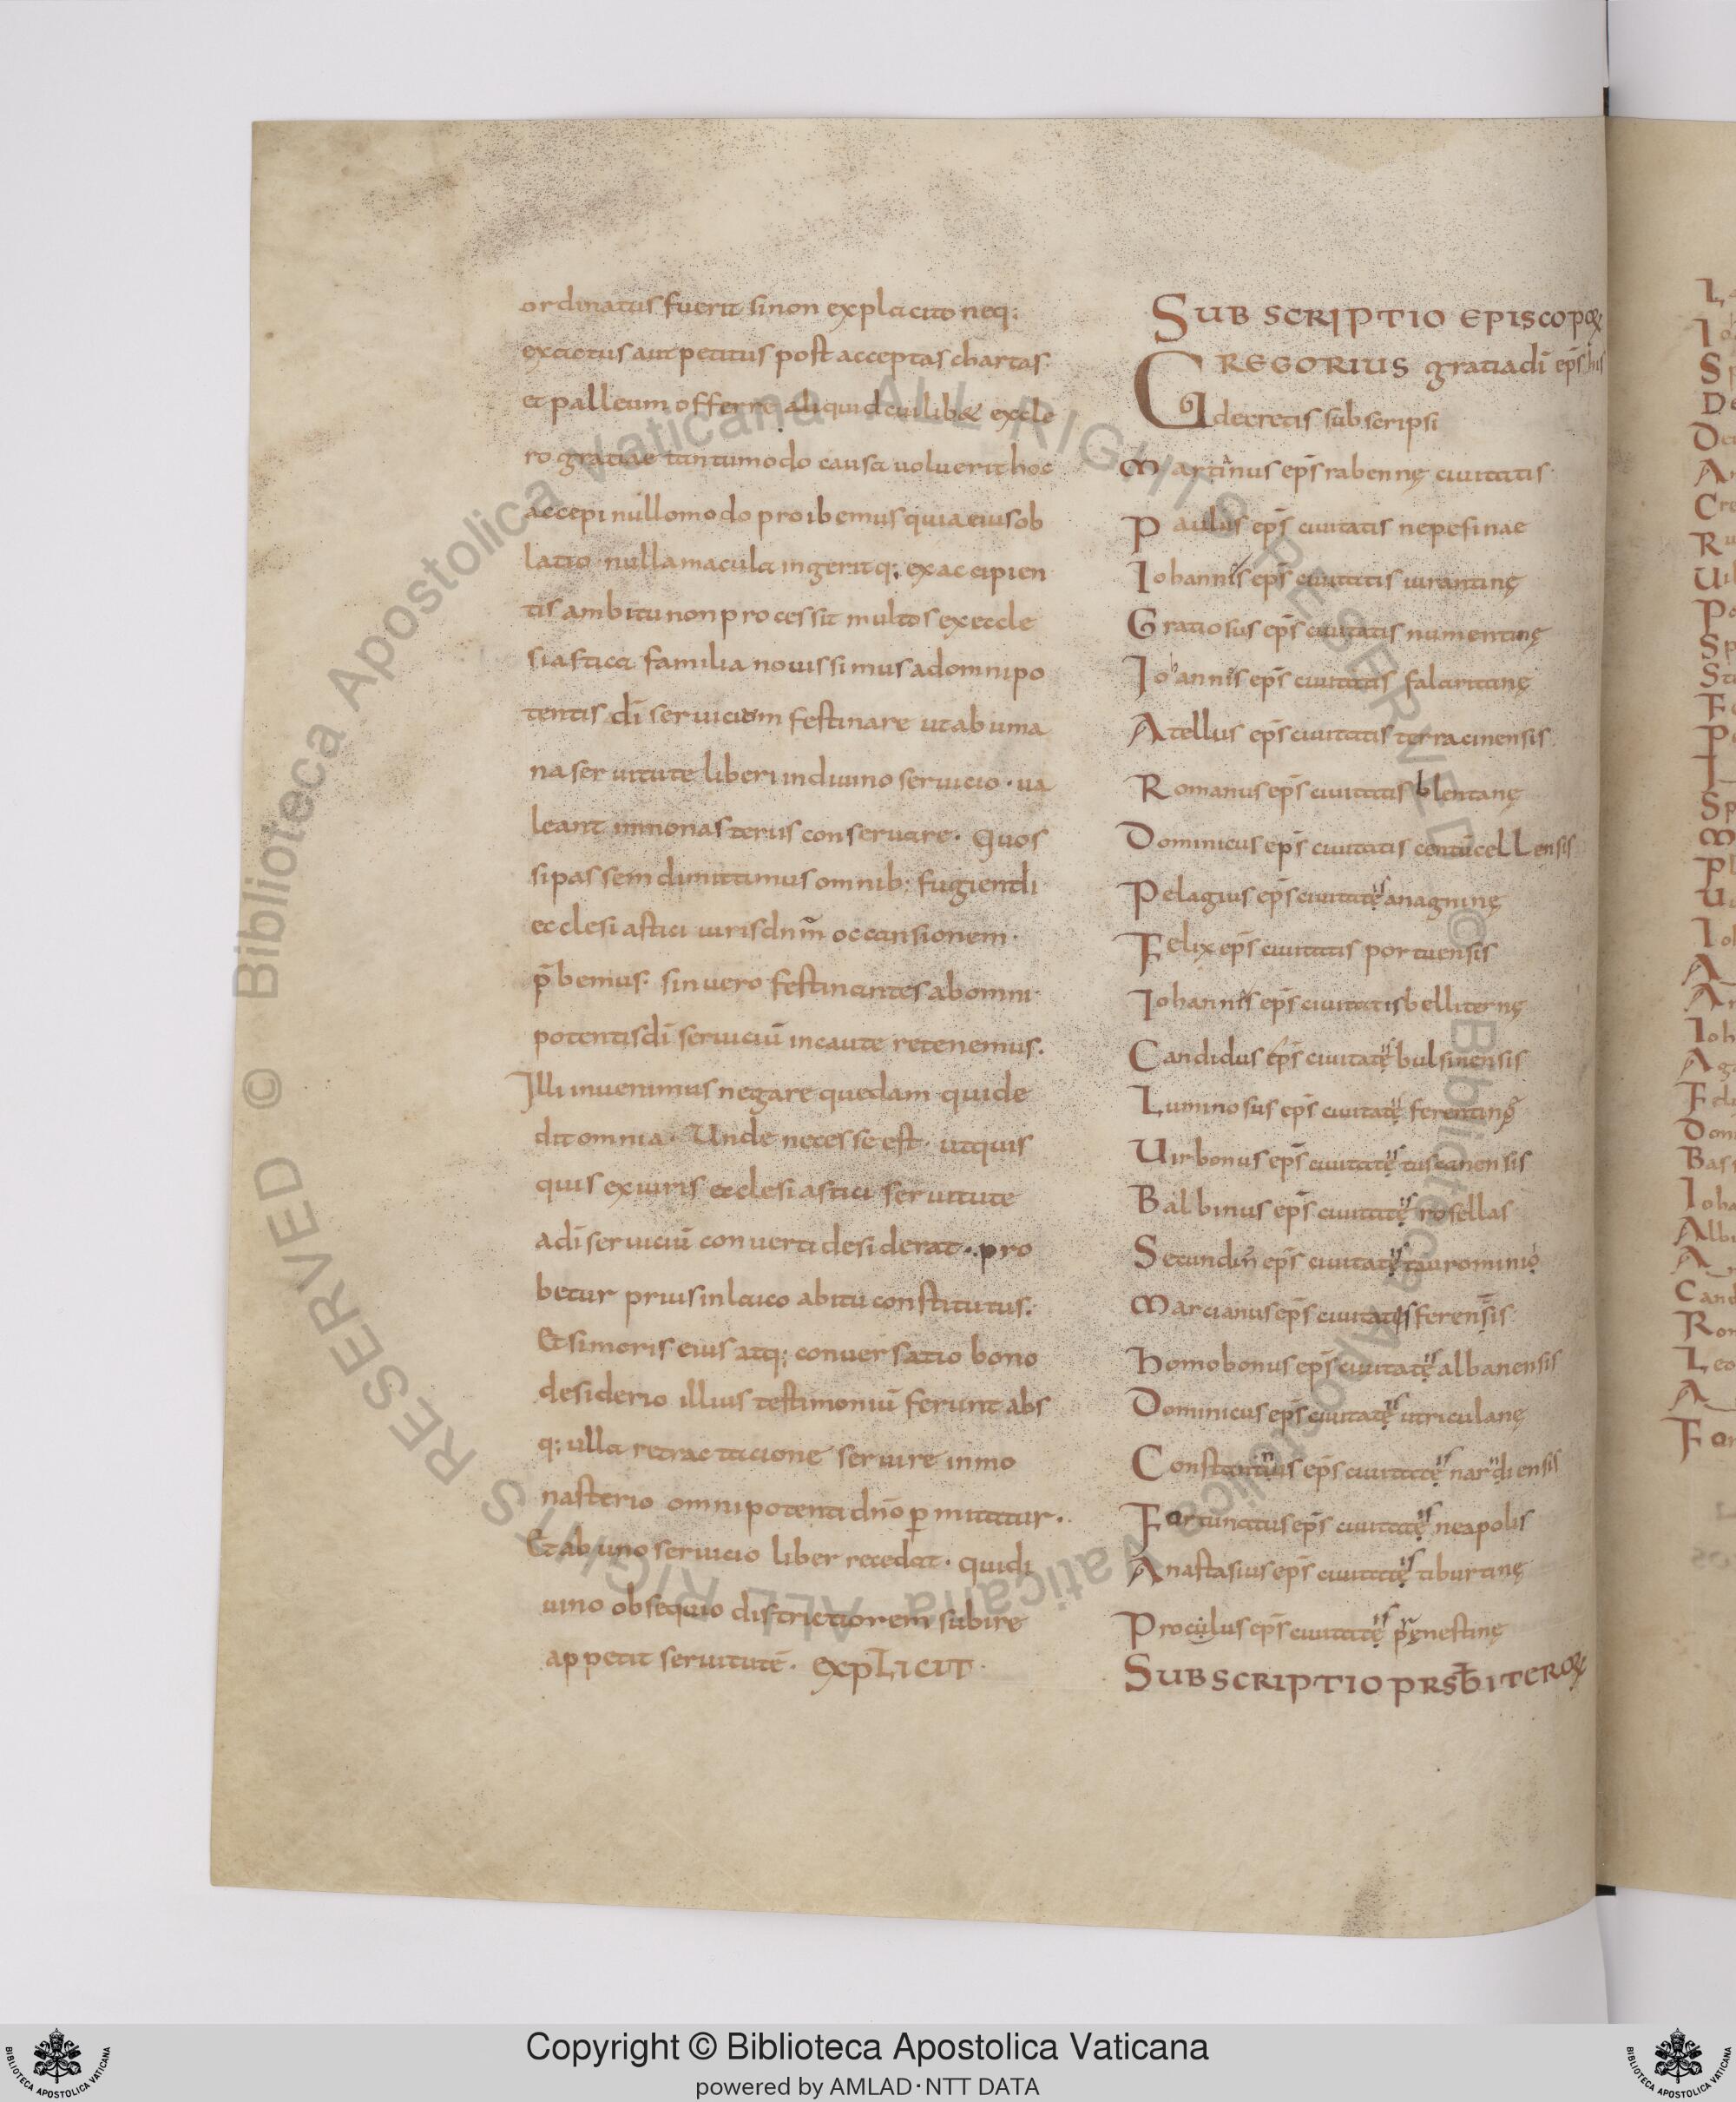 ordinatus fuerit sinon explicito neq;
exactus aut petitus post acceptas chartas.
et palleum offerre aliquid cuilib& excle
ro gratiae tantumodo causa uoluerit hoc
accepi nullomodo proibemus quia eius ob
latio nulla macula ingerit q; ex accipien
tis ambitu non processit multos ex eccle
siastica familia nouissimus ad omnipo
tentis dī seruiciom festinare ut ab uma
na seruitute liberi in diuino seruicio · ua
leant in monasteriis conseruare · Quos
si passem dimittimus omnib; fugiendi
ecclesiastici iuris dnm̄ occansionem ·
p̄bemus · sin uero festinantes ab omni
potentis dī seruiciū incaute retenemus.
Illi inuenimus negare quedam qui de
dit omnia · Unde necesse est · ut quis
quis ex iuris ecclesiastici seruitute
ad dī seruiciū conuerti desiderat · pro
betur prius in laico abitu constitutus.
Et si moris eius atq; conuersatio bono
desiderio illius testimoniū ferunt abs
q; ulla retractacione seruire in mo
nasterio omnipotenti dn̄o p mittatur.
Et ab uno seruicio liber recedat · qui di
uino obsequio districtiorem subire
appetit seruitutē · EXPLICIT ·
SUBSCRIPTIO EPISCOPOꝜ
GREGORIUS gratia dī ep̄s his
decretis subscripsi
Martinus ep̄s rabennę ciuitatis
Paulus ep̄s ciuitatis nepesinae
Iohannis ep̄s ciuitatis uirantinę
Gratiosus ep̄s ciuitatis numentinę
Iohannis ep̄s ciuitatis falaritanę
Atellus ep̄s ciuitatis terracinensis
Romanus ep̄s ciuitatis blentanę
Dominicus ep̄s ciuitatis centūcellensis
Pelagius ep̄s ciuitatęis anagninę
Felix ep̄s ciuitatis portuensis
Iohannis ep̄s ciuitatis belliternę
Candidus ep̄s ciuitatęis bulsinensis
Luminosus ep̄s ciuitatęis ferentinę
Uirbonus ep̄s ciuitatęis tuscanensis
Balbinus ep̄s ciuitatęis rosellas
Secundin ep̄s ciuitatęis taurominio
Marcianus ep̄s ciuitatis ferensis
Homobonus ep̄s ciuitatęis albanensis
Dominicus ep̄s ciuitatęis utriculanę
Constantinus ep̄s ciuitatęis narndiensis
Fortunatus ep̄s ciuitatęis neapolis
Anastasius ep̄s ciuitatęis tiburtinę
Proculus ep̄s ciuitatęis p̄ęnestinę
SUBSCRIPTIO PRSBITEROꝜ
Copyright © Biblioteca Apostolica Vaticana
powered by AMLAD·NTT DATA